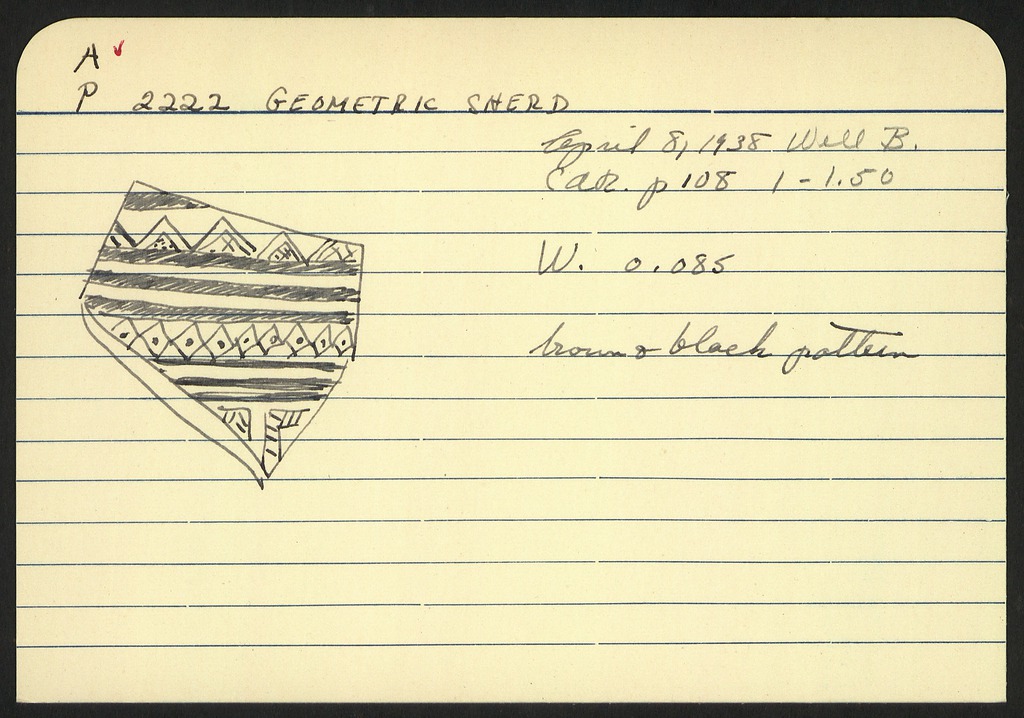 A
P 2222 GEOMETRIC SHERD
April 8, 1938 Well B.
p 108 1-1.50
W. 0.085
brown & black pattern